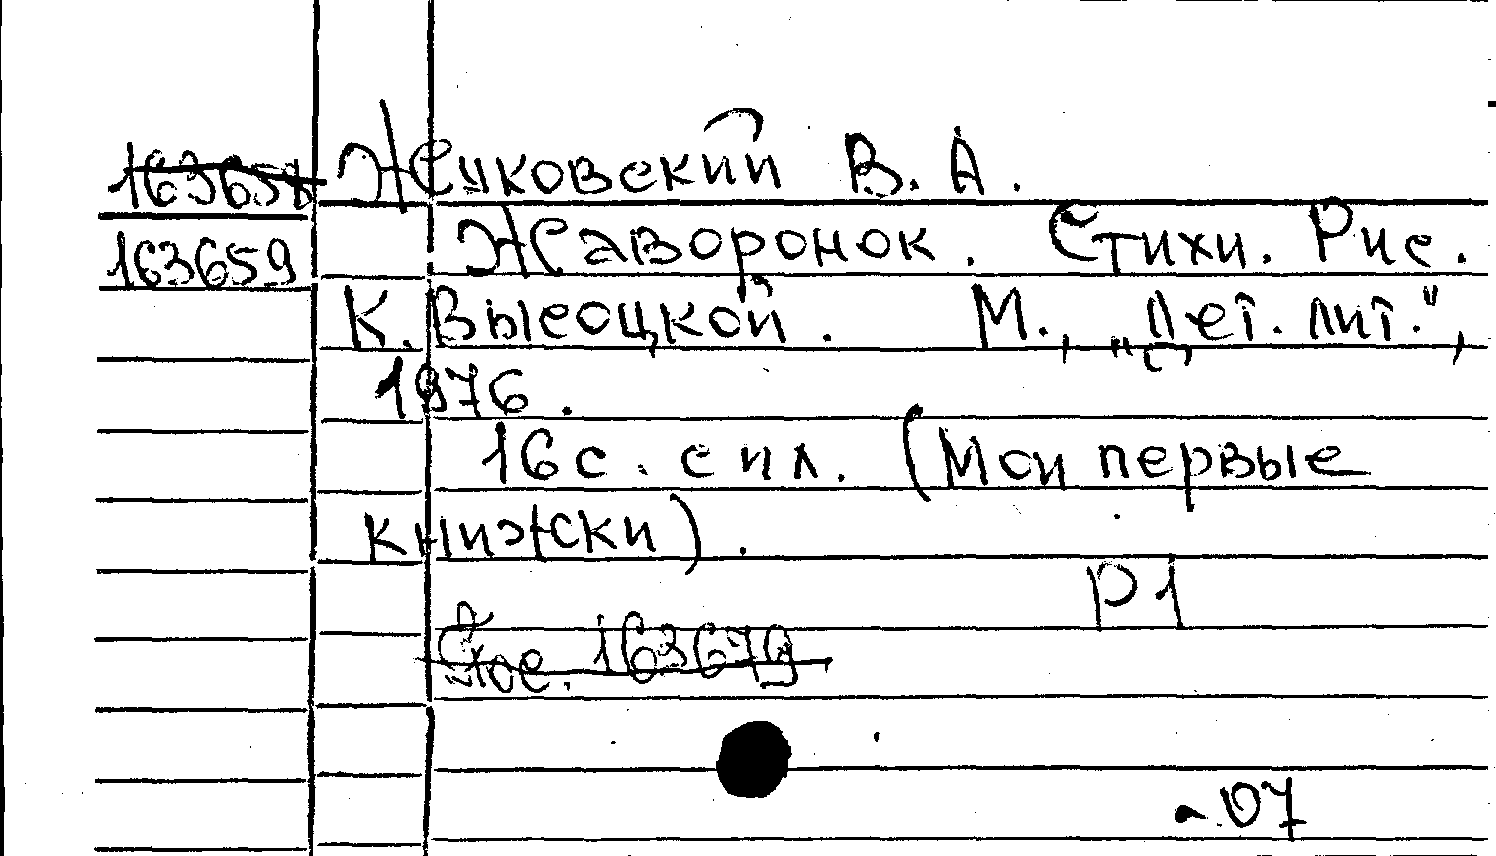 163658 Жуковский В. А.
163659 Жаворонок. Стихи. Рис.
К. Высоцкой. М., "Дет. лит.",
1976.
16 с. с ил. (Мои первые
книжки).
Р1
163679
07